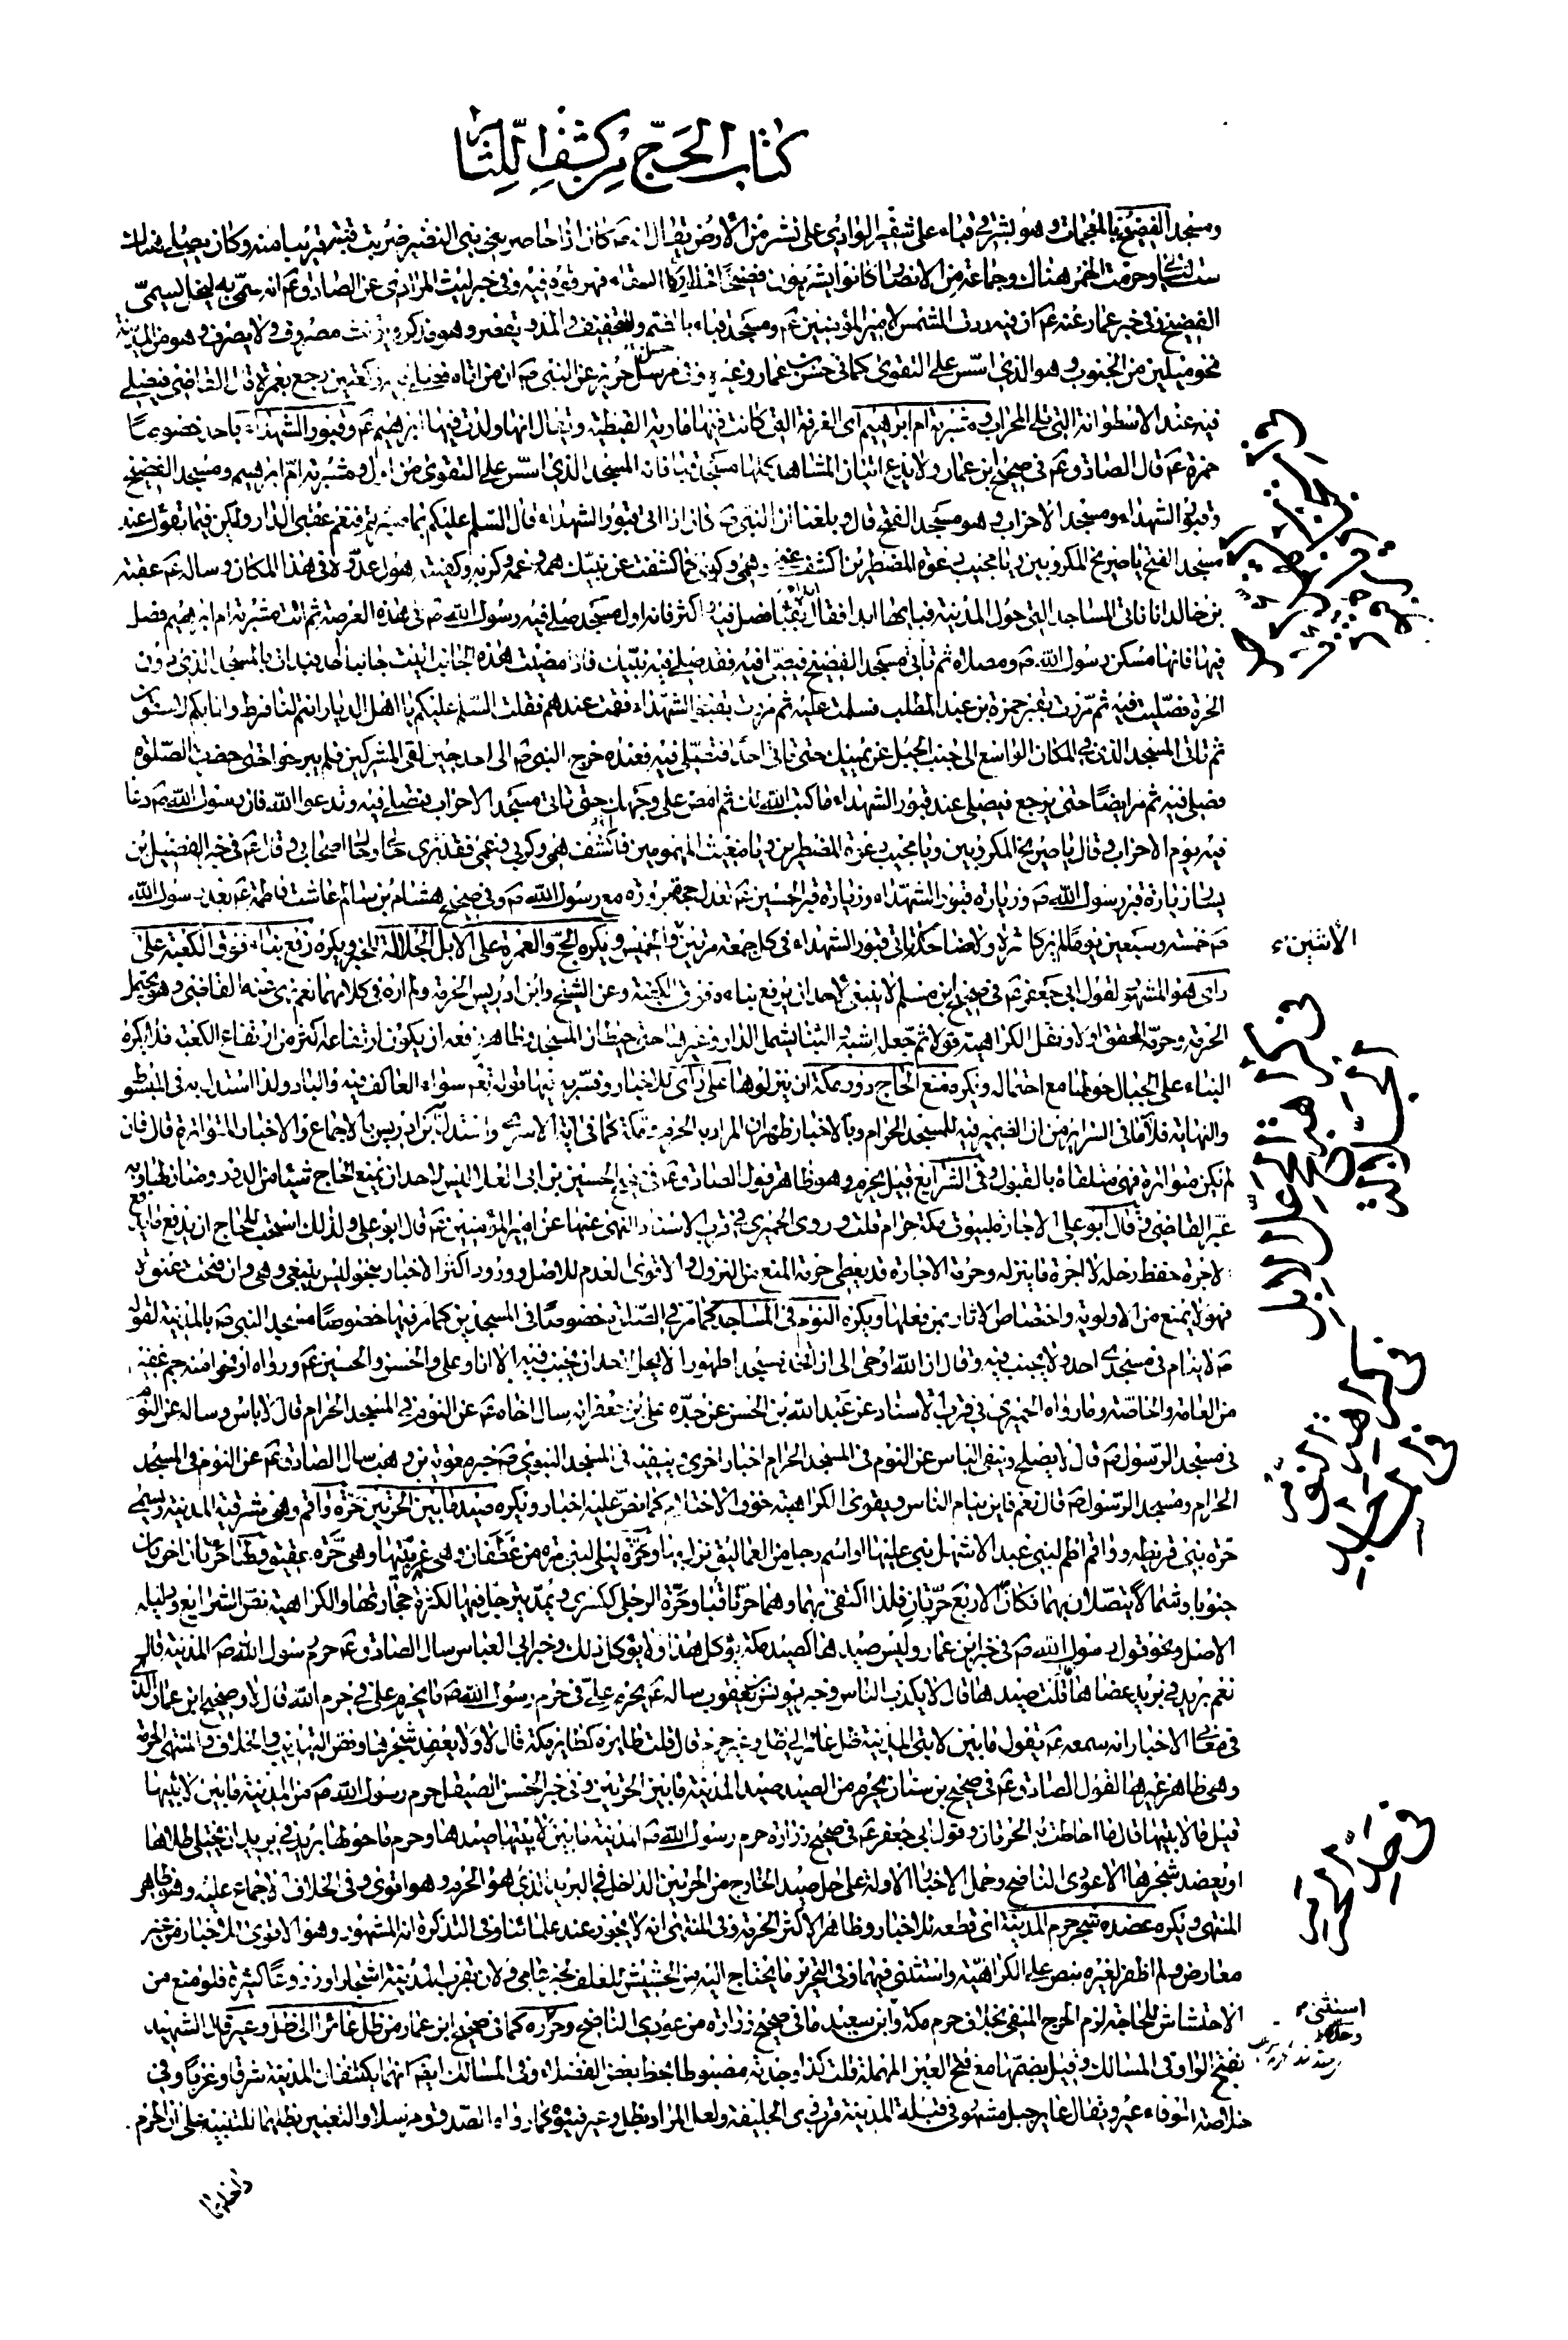 كتاب الحج من كشف اللثام
ومسجد الفضيخ بالمعجمات وهو بشرقي قباء على شفير الوادي على نشز من الارض يقال انه ص كان اذا حاصر بني النضير ضربت قبته قريبا منه وكان يصلي هناك
ست ليال وحرمت الخمر هناك وجماعة من الانصار كانوا يشربون فضيخا فهرقوه فيه وفي خبر ليث المرادي عن الصادق ع انه سمي به لنخل يسمى
الفضيخ وفي خبر عمار عنه ع ان فيه ردت الشمس لامير المؤمنين ع ومسجد قباء بالضم والتخفيف والمد ويقصر وهو يذكر ويؤنث مصروف ولا يصرف وهو من المدينة
نحو ميلين من الجنوب وهو الذي اسس على التقوى كما في حسن بن عمار وغيره وفي مرسل حريز عن النبي ص ان من اتاه فصلى فيه ركعتين رجع بعمرة قال القاضي فيصلي
فيه عند الاسطوانة التي تلي المحراب ومشربة ام ابرهيم اى الغرفة التي كانت فيها مارية القبطية ويقال انها ولدت فيها ابرهيم ع وقبور الشهداء باحد خصوصا
حمزة ع قال الصادق ع في صحيح ابن عمار ولا تدع اتيان المشاهد كلها مسجد قبا فانه المسجد الذي اسس على التقوى من اول ومشربة ام ابرهيم ومسجد الفضيخ
وقبور الشهداء ومسجد الاحزاب وهو مسجد الفتح قال وبلغنا ان النبي ص كان اذا اتى قبور الشهداء قال السلم عليكم بما صبرتم فنعم عقبى الدار وليكن فيما تقول عند
مسجد الفتح يا صريخ المكروبين ويا مجيب دعوة المضطرين اكشف غمي وهمي وكربي كما كشفت عن نبيك همه وغمه وكربه وكفيته هول عدوه في هذا المكان وساله ع عقبة
بن خالد انا ناتي المساجد التي حول المدينة فبايها ابدا فقال ابدا بقبا فصل فيه واكثر فانه اول مسجد صلى فيه رسول الله ص في هذه العرصة ثم ائت مشربة ام ابرهيم فصل
فيها فانها مسكن رسول الله ص ومصلاه ثم تاتي مسجد الفضيخ فيصلي فيه فقد صلى فيه نبيك فاذا قضيت هذا الجانب اتيت جانب احد فبدات بالمسجد الذي دون
الحرة فصليت فيه ثم مررت بقبر حمزة بن عبد المطلب فسلمت عليه ثم مررت بقبور الشهداء فقمت عندهم فقلت السلم عليكم يا اهل الديار انتم لنا فرط وانا بكم لاحقون
ثم تاتي المسجد الذي في المكان الواسع الى جنب الجبل عن يمينك حتى تاتي احدا فتصلي فيه فعنده خرج النبي ص الى احد حين لقى المشركين فلم يبرحوا حتى حضرت الصلوة
فصلى فيه ثم مر ايضا حتى يرجع فيصلي عند قبور الشهداء ما كتب الله لك ثم امض على وجهك حتى تاتي مسجد الاحزاب فتصلي فيه وتدعو الله فان رسول الله ص دعا
فيه يوم الاحزاب وقال يا صريخ المكروبين ويا مجيب دعوة المضطرين ويا مغيث المهمومين فاكشف همي وكربي وغمي فقد ترى حالي وحال اصحابي وقال ع في خبر الفضيل بن
يسار زيارة قبر رسول الله ص وزيارة قبور الشهداء وزيارة قبر الحسين ع تعدل حجة مبرورة مع رسول الله ص وفي صحيح هشام بن سالم عاشت فاطمة ع بعد رسول الله
ص خمسة وسبعين يوما لم تر كاشرة ولا ضاحكة تاتي قبور الشهداء في كل جمعة مرتين والخميس ويكره الحج والعمرة على الابل الجلالة للخبر ويكره رفع بناء فوق الكعبة على
راى هو المشهور لقول ابي جعفر ع في صحيح ابن مسلم لا ينبغي لاحد ان يرفع بناء فوق الكعبة وعن الشيخ وابن ادريس الحرمة ولم اره في كلامهما
الحرمة وحرمه المحقق اولا ونقل الكراهية قولا ثم جعل اشبه البناء يشمل الدار وغيرها حتى حيطان المسجد وظاهر رفعه ان يكون ارتفاعه اكثر من ارتفاع الكعبة فلا يكره
البناء على الجبال حولها مع احتماله ويكره منع الحاج دور مكة ان ينزلوها على راى للاخبار وفسر به فيها قوله تعم سواء العاكف فيه والباد ولذا استدل به في المبسوط
والنهاية فلا من ان الضمير فيه للمسجد الحرام وبالاخبار ظهران المراد به الحرم ومكة كما في اية الاسرى واستدل ابن ادريس بالاجماع والاخبار المتواترة قال فان
لم تكن متواترة فهى متلقاة بالقبول وفي الشرايع قيل يحرم وهو ظاهر قول الصادق ع في الحسين بن ابى العلا ليس لاحد ان يمنع الحاج شيئا من الدور ومنازلها وبه
عبر القاضي وقال ابو علي الاجازة لبيوت مكة حرام قلت وروى الحميري في قرب الاسناد النهي عنها عن امير المؤمنين ع قال ابو علي ولذلك استحب للحاج ان يدفع ما يدفع
لاجرة حفظ رحله لا اجرة ما ينزله وحرمة الاجارة قد يعطى حرمة المنع من النزول والاقوى العدم للاصل وورود اكثر الاخبار بنحو ليس ينبغي وهي وان فتحت عنوة
فهو لا يمنع من الاولوية واختصاص الاثار بمن فعلها ويكره النوم في المساجد كما مر في الصلوة خصوصا في المسجدين كما مر فيها خصوصا مسجد النبي ص بالمدينة لقوله
ص لا ينام في مسجدي احد ولا يجنب فيه وقال ان الله اوحى الى ان اتخذ مسجدا طهورا لا يحل لاحد ان يجنب فيه الا انا وعلي والحسن والحسين ع ورواه او نحوا منه جم غفير
من العامة والخاصة وما رواه الحميري في قرب الاسناد عن عبد الله بن الحسن عن جده علي بن جعفر انه سال اخاه ع عن النوم في المسجد الحرام قال لا باس وساله عن النوم
في مسجد الرسول ص قال لا يصلح وينفى الباس عن النوم في المسجد الحرام اخبار اخرى وينفيه في المسجد النبوي ص خبر معوية بن وهب سال الصادق ع عن النوم في المسجد
الحرام ومسجد الرسول ص قال نعم فاين ينام الناس ويقوى الكراهية خوف الاحتلام كما نص عليه اخبار ويكره صيد ما بين الحرتين حرة واقم وهي شرقية المدينة ويسمى
حرة بني قريظة وواقم اطم لبني عبد الاشهل بني عليها او اسم رجل من العماليق نزل بها وحرة ليلى لبني مرة من غطفان وهي غربيتها وهي حرة العقيق ولها حرتان اخريان
جنوبا وشمالا يتصلان بهما فكان الاربع حرتان فلذا اكتفى بهما وهما حرتا قبا وحرة الرجلي ككسرى ويمد يترجل فيها لكثرة حجارتها والكراهية نص الشرايع ودليله
الاصل ونحو قول رسول الله ص في خبر ابن عمار وليس صيدها كصيد مكة يؤكل هذا ولا يؤكل ذلك وخبر ابي العباس سال الصادق ع حرم رسول الله ص المدينة قال
نعم بريد في بريد عضاها قلت صيدها قال لا يكذب الناس وخبر يونس بن يعقوب ساله ع يحرم علي في حرم رسول الله ص ما يحرم علي في حرم الله قال لا وصحيح ابن عمار الذي
في معاني الاخبار انه سمعه ع يقول ما بين لابتي المدينة ظل عائر الى ظل وعير حرم قال قلت طايره كطاير مكة قال لا ولا يعضد شجرها ونص التهذيب والخلاف والمنتهى الحرمة
وهي ظاهر غيرها لقول الصادق ع في صحيح بن سنان يحرم من الصيد صيد المدينة ما بين الحرتين وفي خبر الحسن الصيقل حرم رسول الله ص من المدينة ما بين لابتيها
قيل ما لابتيها قال ما احاطت به الحرتان وقول ابي جعفر ع في صحيح زرارة حرم رسول الله ص المدينة ما بين لابتيها صيدها وحرم ما حولها بريد في بريد ان يختلى خلاها
او يعضد شجرها الا عودي الناضح وحمل الاخبار الاولة على حل صيد الخارج من الحرتين الداخل في البريد الذي هو الحرم وهو اقوى وفي الخلاف الاجماع عليه وهو ظاهر
المنتهى ويكره عضد شجر حرم المدينة اى قطعه للاخبار وظاهر الاكثر الحرمة وفي المنتهى انه لا يجوز عند علمائنا وفي التذكرة انه المشهور وهو الاقوى للاخبار من غير
معارض ولم اظفر لغيره بنص على الكراهية واستثنى فيهما وفي التحرير ما يحتاج اليه من الحشيش للعلف لخبر عامي ولان بقرب المدينة اشجارا وزروعا كثيرة فلو منع من
الاحتشاش للحاجة لزم الحرج المنفى بخلاف حرم مكة وابن سعيد ما في صحيح زرارة من عودي الناضح وحرره كما في صحيح ابن عمار من ظل عائر الى ظل وعير قال الشهيد
بفتح الواو في المسالك وقيل بضمها مع فتح العين المهملة قلت كذا وجدته مضبوطا بخط بعض الفضلاء وفي المسالك ايضا انهما يكتنفان المدينة شرقا وغربا وفي
خلاصة الوفاء عير ويقال عاير جبل مشهور في قبلة المدينة قرب ذي الحليفة ولعل المراد بظل وعير فيئه كما رواه الصدوق مرسلا والتعبير بظلهما للتنبيه على ان الحرم
داخلهما
الاثنين
في كراهة الحج على الابل الجلالة
في كراهة النوم في المساجد
في صيد الحرم
استثنى